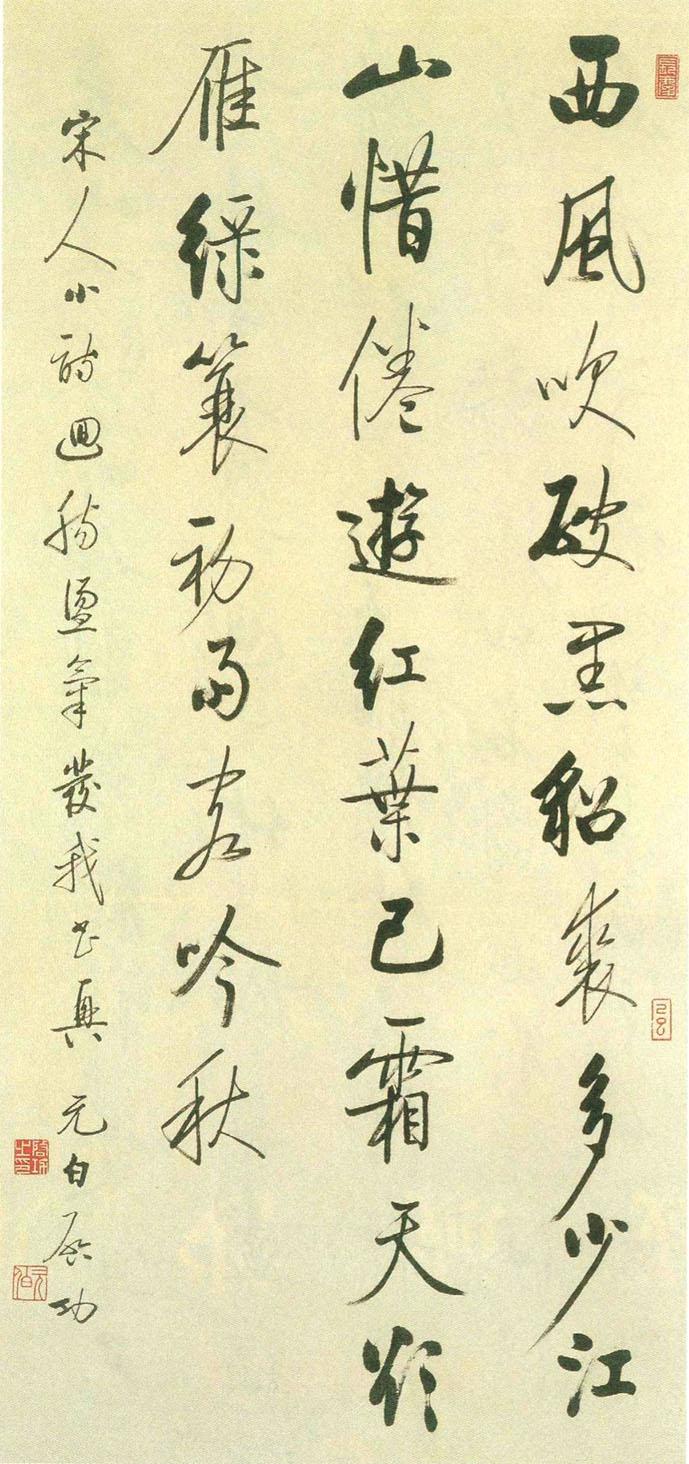 西風吹破黑貂裘多少江
山惜倦遊紅葉已霜天欲
雁綠蓑初雨客吟秋
宋人小詩迴腸盪氣發我書興 元白启功